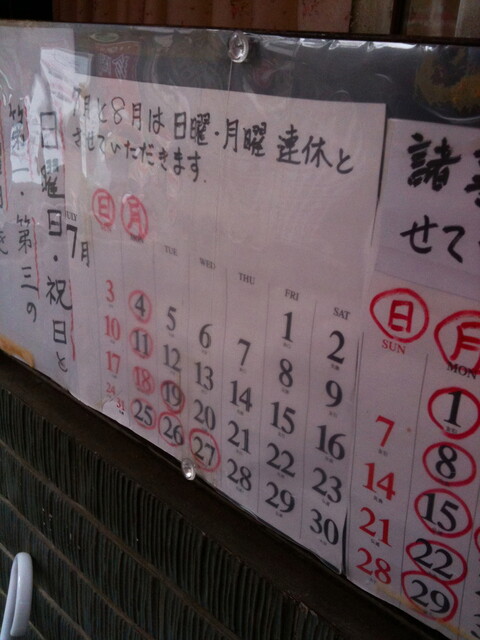 7月と8月は日曜・月曜 連休と
させていただきます.
日曜日・祝日と
第一・第三の
7月
日 月
TUE WED THU FRI SAT
1 2
3 4 5 6 7 8 9
10 11 12 13 14 15 16
17 18 19 20 21 22 23
24 31 25 26 27 28 29 30
諸
せて
日 月
SUN MON
1
7 8
14 15
21 22
28 29